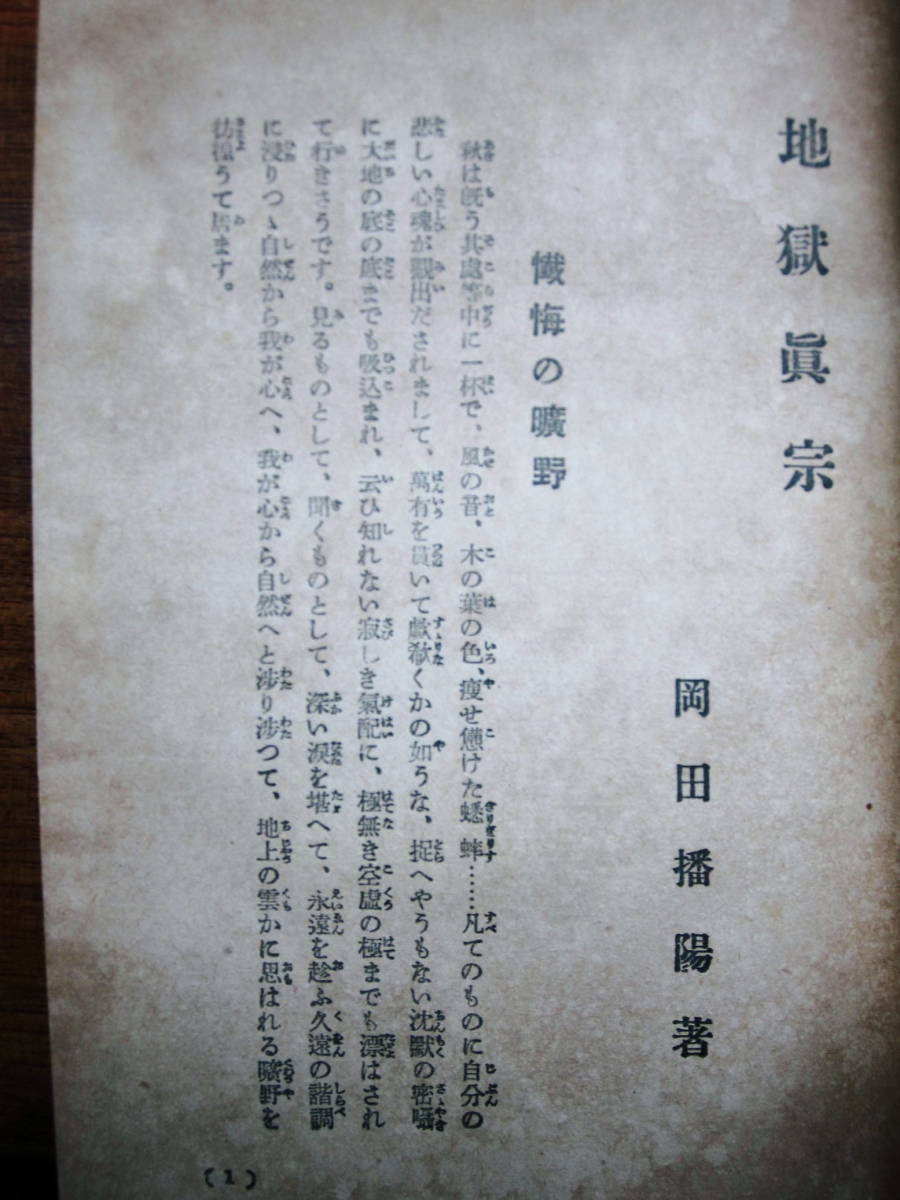 地獄眞宗
岡田播陽著
懺悔の曠野
秋は既う其處等中に一杯で、風の音、木の葉の色、瘦せ憊けた蟋蟀……凡てのものに自分の
悲しい心魂が觀出だされまして、萬有を貫いて歔欷くかの如うな、捉へやうもない沈默の密囁
に大地の底の底までも吸込まれ、云ひ知れない寂しき氣配に、極無き空虛の極までも漂はされ
て行きさうです。見るものとして、聞くものとして、深い淚を堪へて、永遠を趁ふ久遠の諧調
に浸りつゝ自然から我が心へ、我が心から自然へと涉り涉つて、地上の雲かに思はれる曠野を
彷徨うて居ます。
(1)